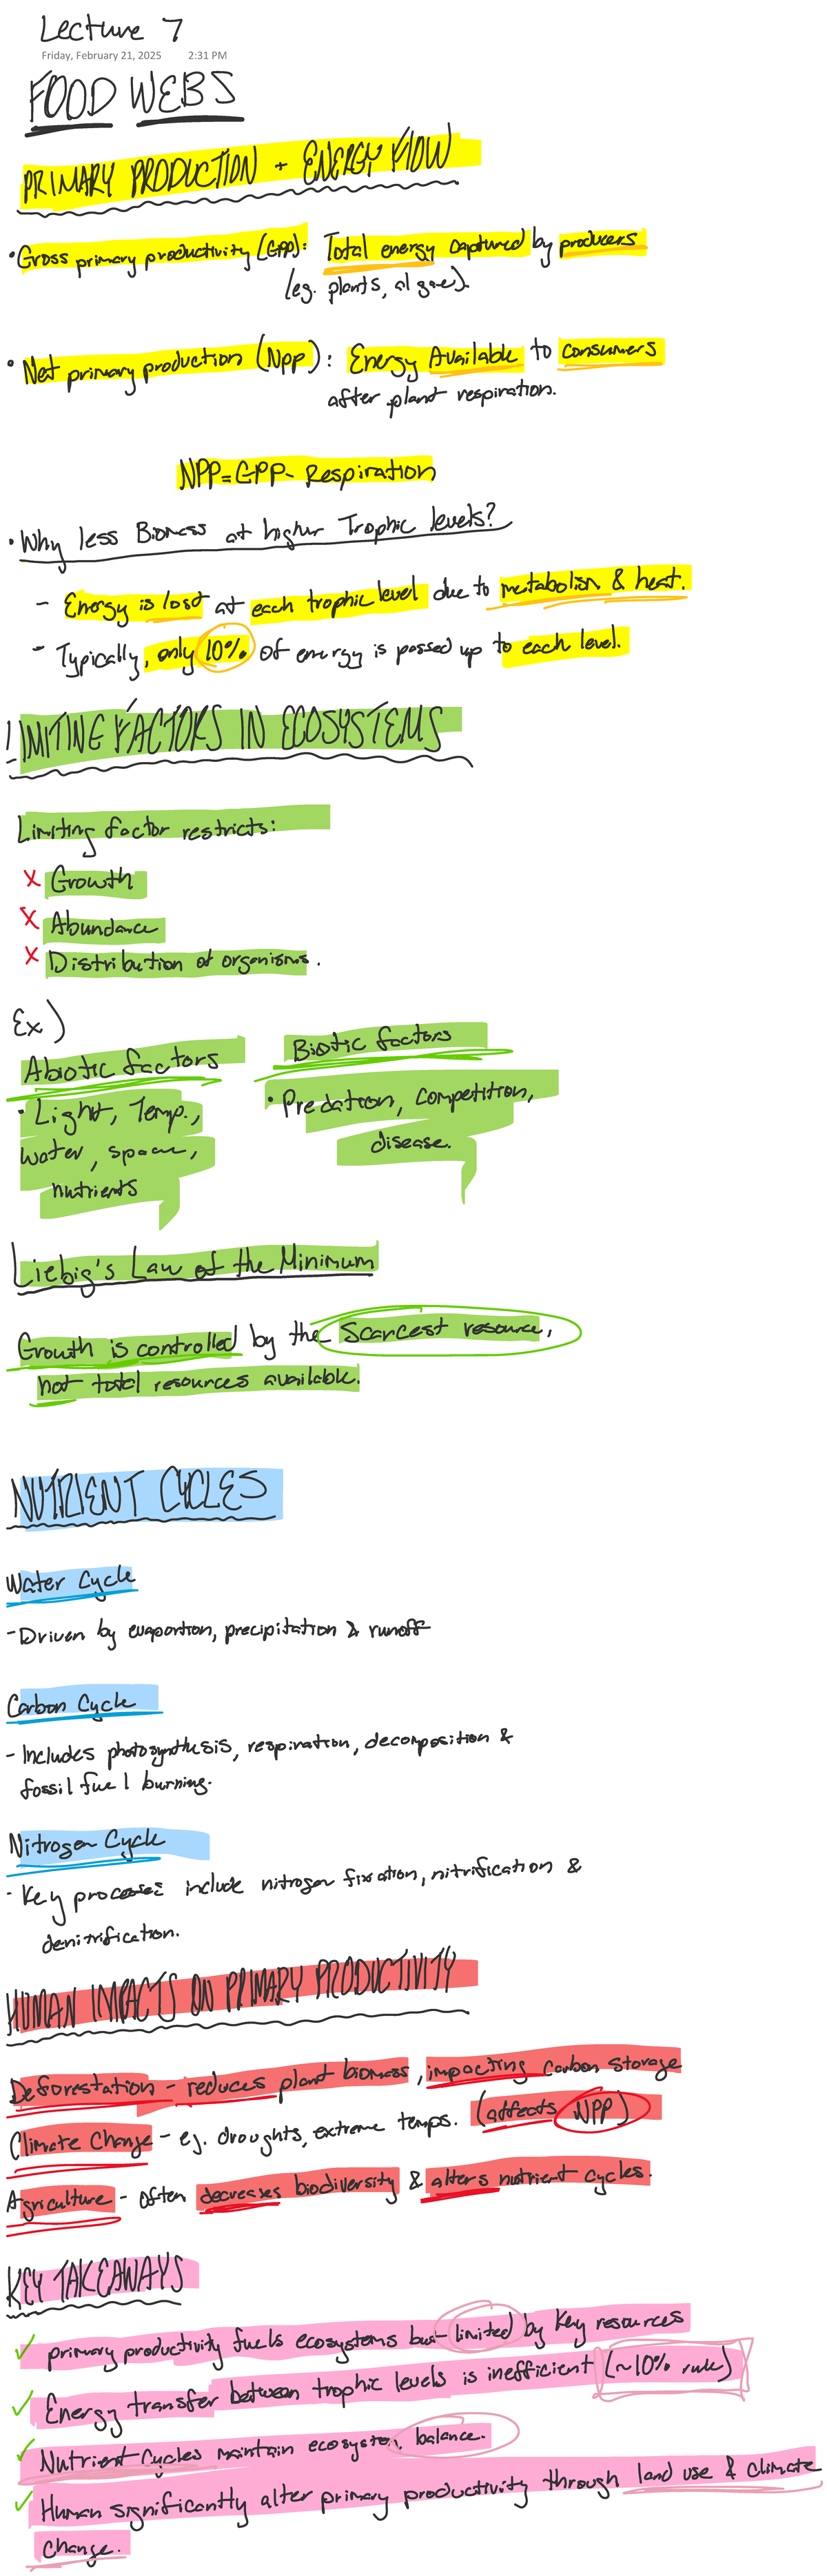 Lecture 7
Friday, February 21, 2025 2:31 PM
FOOD WEBS
PRIMARY PRODUCTION + ENERGY FLOW
• Gross primary productivity (GPP): Total energy captured by producers
(eg. plants, algae).
• Net primary production (Npp): Energy Available to consumers
after plant respiration.
NPP=GPP- Respiration
• Why less Biomass at higher Trophic levels?
- Energy is lost at each trophic level due to metabolism & heat.
- Typically, only 10% of energy is passed up to each level.
LIMITING FACTORS IN ECOSYSTEMS
Limiting factor restricts:
x Growth
x Abundance
x Distribution of organisms.
Ex)
Abiotic factors
• Light, Temp.,
water, space,
nutrients
Biotic factors
• Predation, competition,
disease.
Liebig's Law of the Minimum
Growth is controlled by the Scarcest resource,
not total resources available.
NUTRIENT CYCLES
Water Cycle
- Driven by evaportion, precipitation & runoff
Carbon Cycle
- Includes photosynthesis, respiration, decomposition &
fossil fuel burning.
Nitrogen Cycle
- Key processes include nitrogen fixation, nitrification &
denitrification.
HUMAN IMPACTS ON PRIMARY PRODUCTIVITY
Deforestation - reduces plant biomass, impacting carbon storage
Climate Change - eg. droughts, extreme temps. (affects NPP)
Agriculture - Often decreases biodiversity & alters nutrient cycles.
KEY TAKEAWAYS
✓ primary productivity fuels ecosystems but limited by key resources
✓ Energy transfer between trophic levels is inefficient (~10% rule)
✓ Nutrient Cycles maintain ecosystem balance.
✓ Human significantly alter primary productivity through land use & climate
change.